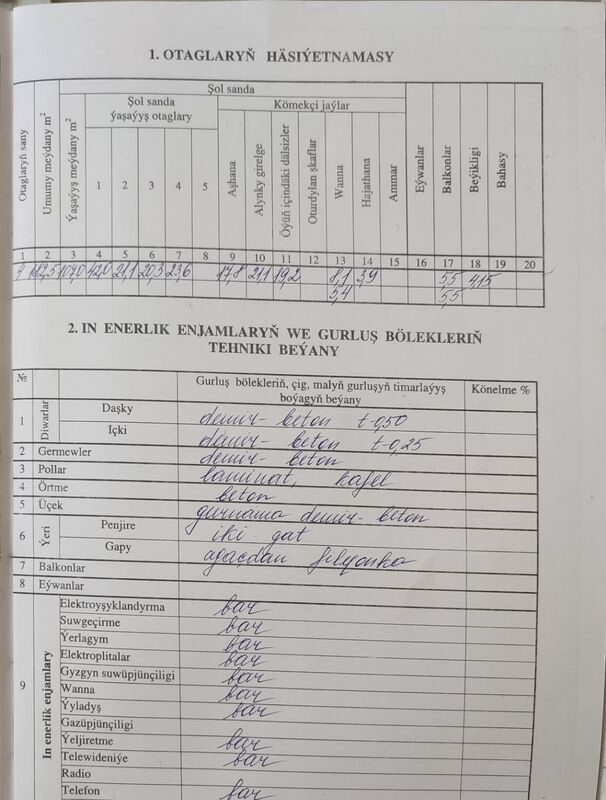 1. OTAGLARYŇ HÄSIÝETNAMASY
Otaglaryň sany
Umumy meýdany m²
Şol sanda
Ýaşaýyş meýdany m²
Şol sanda ýaşaýyş otaglary
Kömekçi jaýlar
1 2 3 4 5
Aşhana
Alynky girelge
Öýüň içindäki dälsizler
Oturdylan şkaflar
Wanna
Hajathana
Ammar
Eýwanlar
Balkonlar
Beýikligi
Bahasy
1 2 3 4 5 6 7 8 9 10 11 12 13 14 15 16 17 18 19 20
4 182,5 107,0 42,0 21,1 20,3 23,6 17,8 21,1 19,2 8,1 3,9 5,5 4,15
5,4 5,5
2. IN ENERLIK ENJAMLARYŇ WE GURLUŞ BÖLEKLERIŇ
TEHNIKI BEÝANY
№ Gurluş bölekleriň, çig, malyň gurluşyň timarlaýyş boýagyň beýany Könelme %
1 Diwarlar Daşky demir-beton t-0,50
Içki demir-beton t-0,25
2 Germewler demir-beton
3 Pollar laminat, kafel
4 Örtme beton
5 Üçek gurnama demir-beton
6 Ýeri Penjire iki gat
Gapy agaçdan filýonka
7 Balkonlar
8 Eýwanlar
9 In enerlik enjamlary Elektroyşyklandyrma bar
Suwgeçirme bar
Ýerlagym bar
Elektroplitalar bar
Gyzgyn suwüpjünçiligi bar
Wanna bar
Ýyladyş bar
Gazüpjünçiligi
Ýeljiretme bar
Telewideniýe bar
Radio
Telefon bar